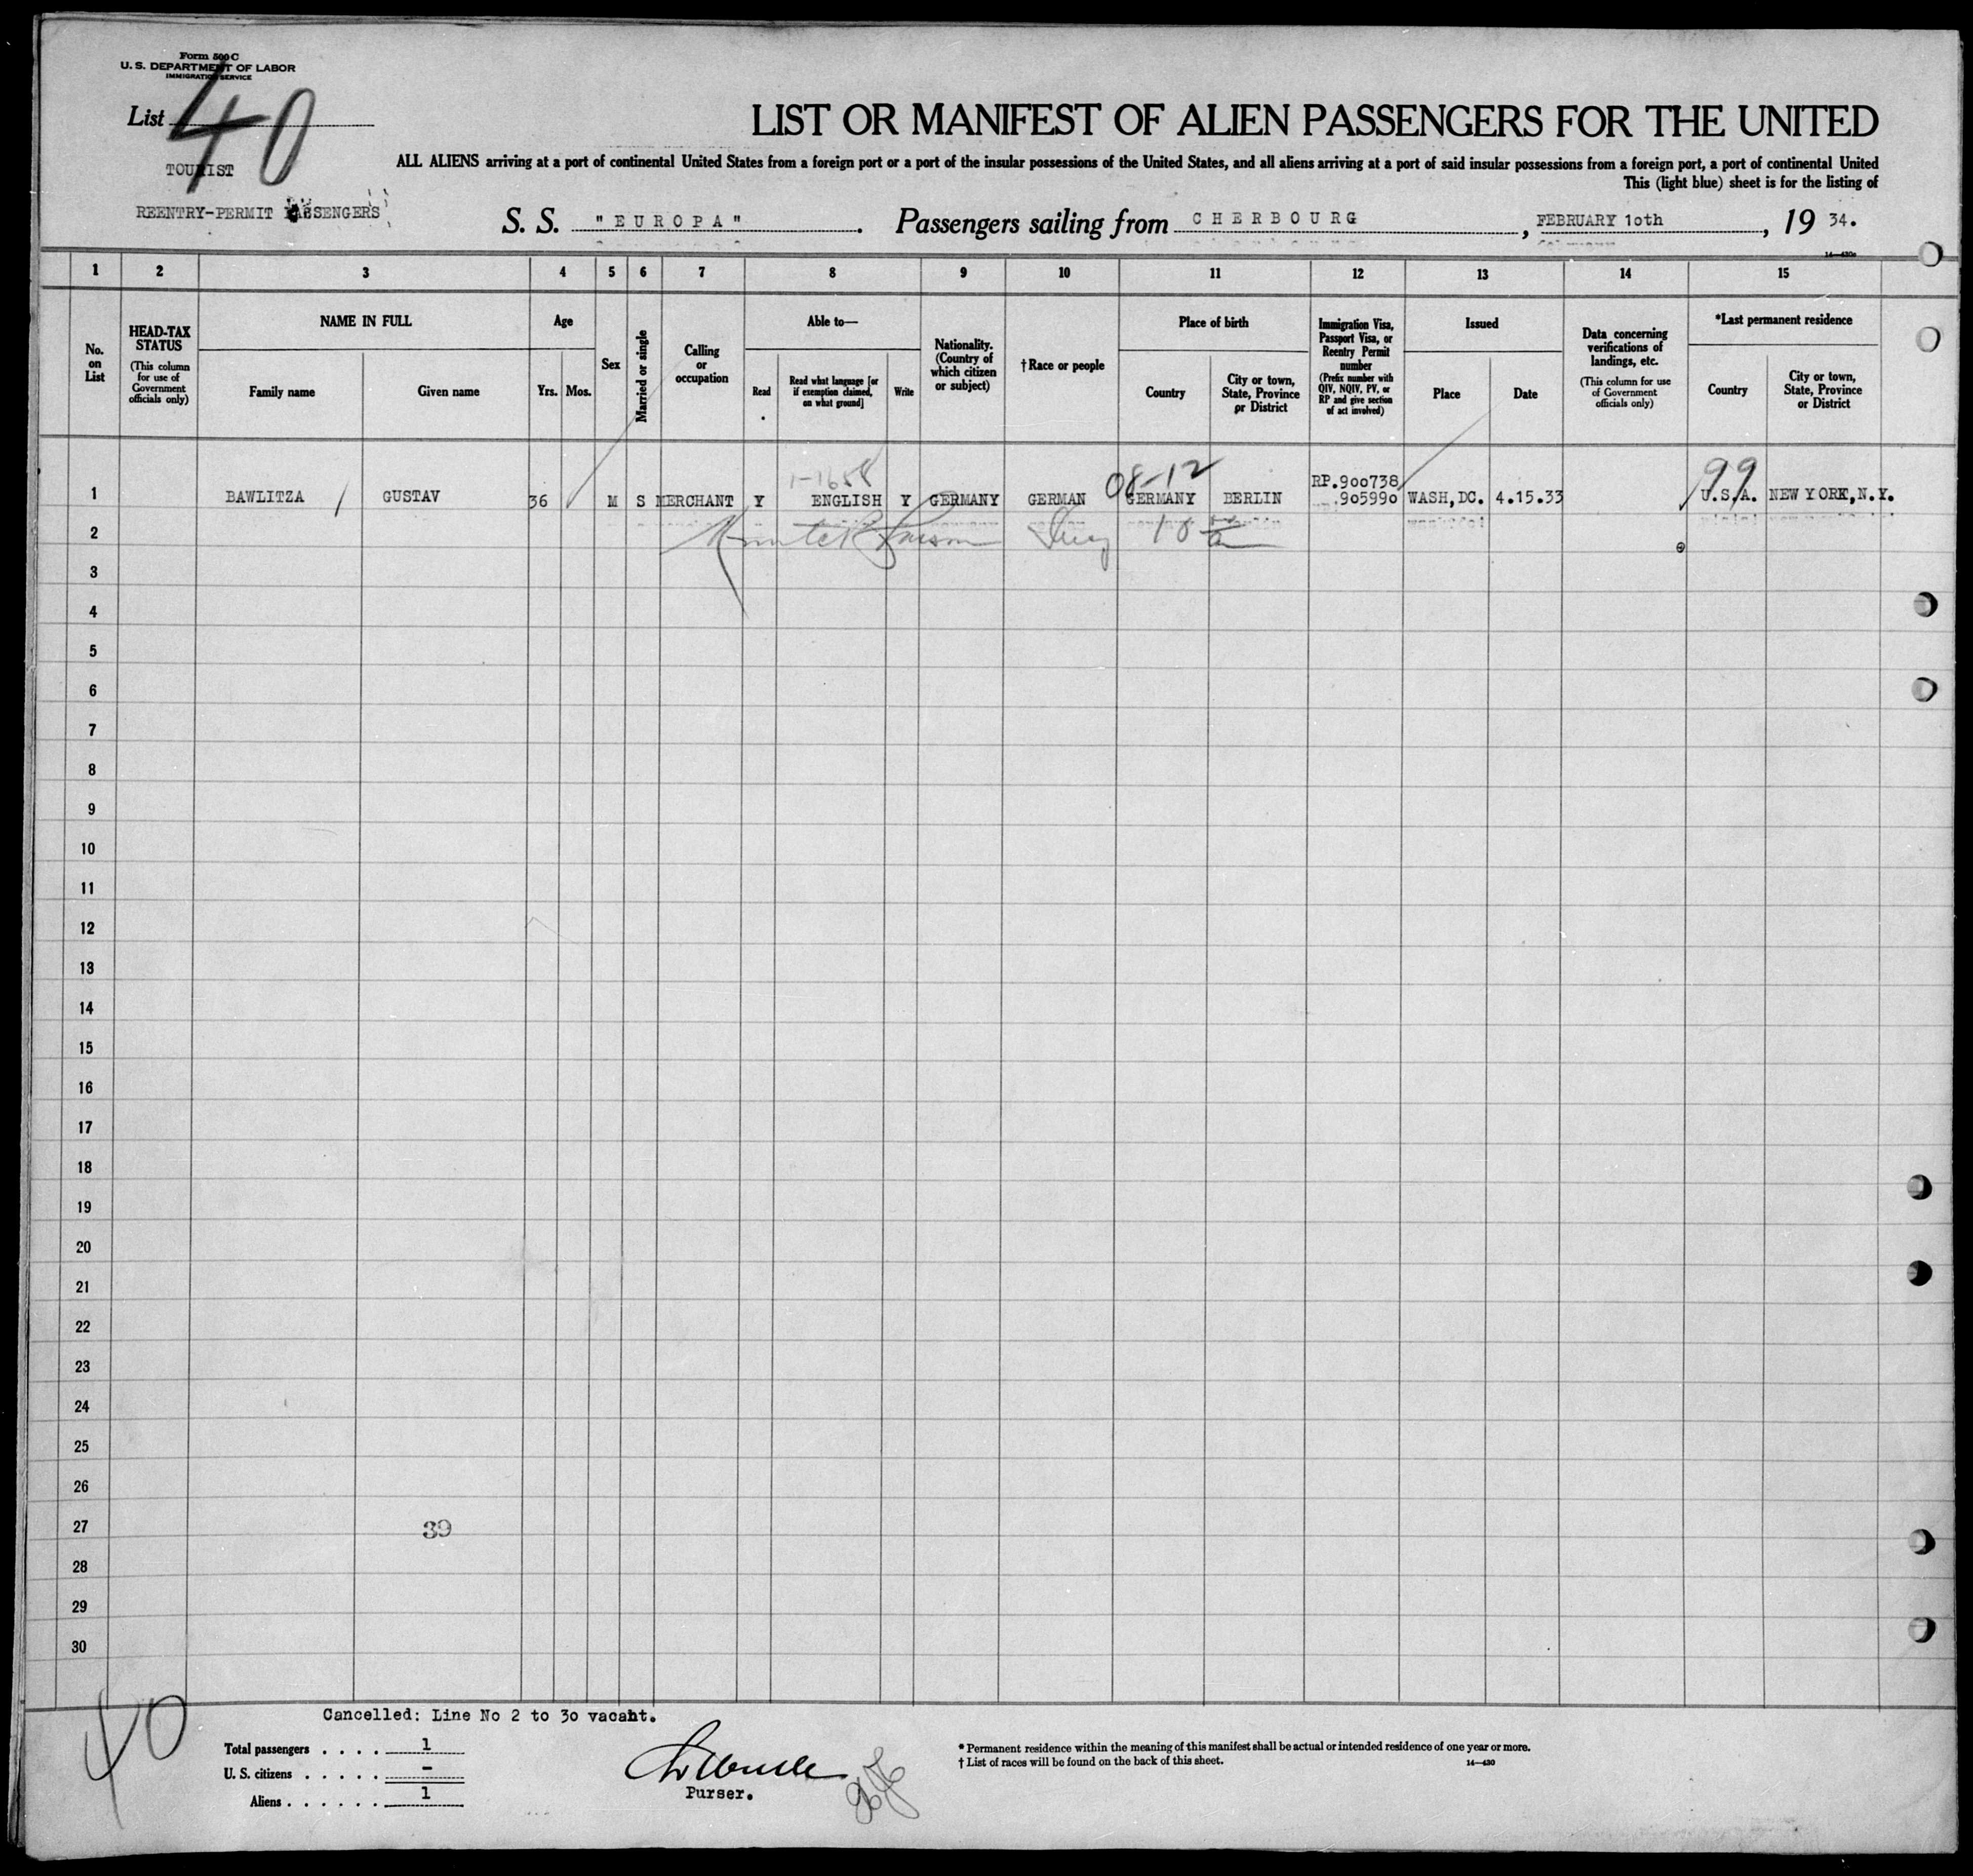 Form 500 C
U. S. DEPARTMENT OF LABOR
IMMIGRATION SERVICE
List 40
TOURIST
REENTRY-PERMIT PASSENGERS
LIST OR MANIFEST OF ALIEN PASSENGERS FOR THE UNITED
ALL ALIENS arriving at a port of continental United States from a foreign port or a port of the insular possessions of the United States, and all aliens arriving at a port of said insular possessions from a foreign port, a port of continental United
This (light blue) sheet is for the listing of
S. S. "EUROPA". Passengers sailing from CHERBOURG, FEBRUARY 10th, 19 34.
1 2 3 4 5 6 7 8 9 10 11 12 13 14 15
No. on List
HEAD-TAX STATUS
(This column for use of Government officials only)
NAME IN FULL
Family name
Given name
Age
Yrs. Mos.
Sex
Married or single
Calling or occupation
Able to—
Read
Read what language [or if exemption claimed, on what ground]
Write
Nationality. (Country of which citizen or subject)
† Race or people
Place of birth
Country
City or town, State, Province or District
Immigration Visa, Passport Visa, or Reentry Permit number
(Prefix number with QIV, NQIV, PV, or RP and give section of act involved)
Issued
Place
Date
Data concerning verifications of landings, etc.
(This column for use of Government officials only)
*Last permanent residence
Country
City or town, State, Province or District
1-1658 08-12 RP.900738 99
1 BAWLITZA GUSTAV 36 M S MERCHANT Y ENGLISH Y GERMANY GERMAN GERMANY BERLIN .905990 WASH,DC. 4.15.33 U.S.A. NEW YORK,N.Y.
2
3
4
5
6
7
8
9
10
11
12
13
14
15
16
17
18
19
20
21
22
23
24
25
26
27 39
28
29
30
40
Cancelled: Line No 2 to 30 vacant.
Total passengers . . . . 1
U. S. citizens . . . . . -
Aliens . . . . . . 1
Purser.
* Permanent residence within the meaning of this manifest shall be actual or intended residence of one year or more.
† List of races will be found on the back of this sheet.
14—430